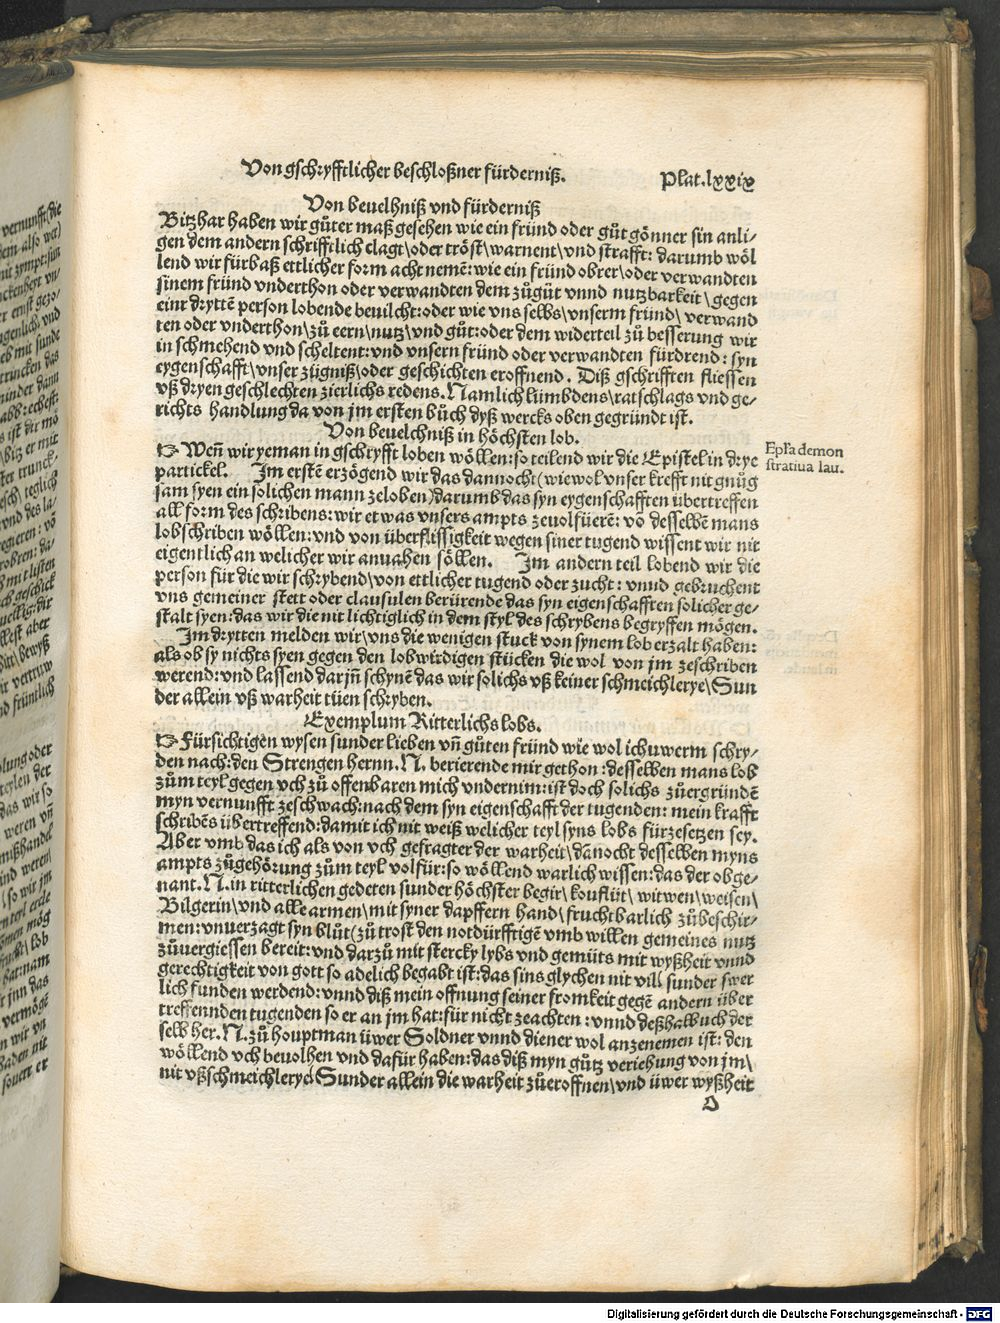 Von gschryfftlicher beschloßner fürderniß.
Plat.lxxix
Von beuelhniß vnd fürderniß
Bitzhar haben wir gůter maß gesehen wie ein fründ oder gůt gönner sin anli-
gen dem andern schrifftlich clagt/oder tröst\warnent\vnd strafft: darumb wöl
lend wir fürbaß ettlicher form acht nemē: wie ein fründ obrer\oder verwandten
sinem fründ vnderthon oder verwandten dem zůgůt vnnd nutzbarkeit\gegen
einr dryttē person lobende beuilcht:oder wie vns selbs\vnserm fründ\ verwand
ten oder vnderthon\zů eern\nutz\vnd gůt:oder dem widerteil zů besserung wir
in schmehend vnd scheltent:vnd vnsern fründ oder verwandten fürdrend: syn
eygenschafft\vnser zügniß\oder geschichten eroffnend. Diß gschrifften fliessen
vß dryen geschlechten zierlichs redens. Namlich lümbdens\ratschlags vnd ge-
richts handlung da von jm ersten bůch dyß wercks oben gegründt ist.
Von beuelchniß in höchsten lob.
☞ Weñ wir yeman in gschryfft loben wöllen:so teilend wir die Epistel in drye
partickel. Im erstē erzögend wir das dannocht(wiewol vnser krefft nit gnůg
sam syen ein solichen mann zeloben)darumb das syn eygenschafften übertreffen
all form des schribens:wir etwas vnsers ampts zeuolfüerē: vō desselbē mans
lobschriben wöllen:vnd von überflissigkeit wegen siner tugend wissent wir nit
eigentlich an welicher wir anuahen söllen. Im andern teil lobend wir die
person für die wir schrybend\von ettlicher tugend oder zucht: vnnd gebruchent
vns gemeiner stett oder clausulen berürende das syn eigenschafften solicher ge-
stalt syen:das wir die nit lichtiglich in dem styl des schrybens begryffen mögen.
Im drytten melden wir\vns die wenigen stuck von synem lob erzalt haben:
als ob sy nichts syen gegen den lobwirdigen stücken die wol von jm zeschriben
werend:vnd lassend darjñ schynē das wir solichs vß keiner schmeichlerye\Sun
der allein vß warheit tüen schryben.
Exemplum Ritterlichs lobs.
☞ Fürsichtigen wysen sunder lieben vñ gůten fründ wie wol ich uwerm schry-
den nach:den Strengen hernn. N. berierende mir gethon:desselben mans lob
zům teyl gegen vch zů offenbaren mich vndernim:ist doch solichs zůergründē
myn vernunfft zeschwach:nach dem syn eigenschafft der tugenden: mein krafft
schribēs übertreffend:damit ich nit weiß welicher teyl syns lobs fürzesetzen sey.
Aber vmb das ich als von vch gefragter der warheit\dānocht desselben myns
ampts zůgehörung zům teyl volfür:so wöllend warlich wissen:das der obge-
nant. N. in ritterlichen gedeten sunder höchster begir\kouflüt\witwen\weisen\
Bilgerin\vnd alle armen\mit syner dapffern hand\fruchtbarlich zůbeschir-
men:vnuerzagt syn blůt(zů trost den notdürfftigē vmb willen gemeines nutz
zůuergiessen bereit:vnd darzů mit stercky lybs vnd gemüts mit wyßheit vnnd
gerechtigkeit von gott so adelich begabt ist:das sins glychen nit vill sunder swer
lich funden werdend:vnnd diß mein offnung seiner fromkeit gegē andern über
treffennden tugenden so er an jm hat:für nicht zeachten:vnnd deßhalb uch der
selb her. N. zů houptman üwer Soldner vnnd diener wol anzenemen ist: den
wöllend vch beuolhen vnd dafür haben:das diß myn gůtz veriehung von jm\
nit vß schmeichlerye Sunder allein die warheit zůeroffnen\vnd üwer wyßheit
O
Epl'a demon
stratiua lau.